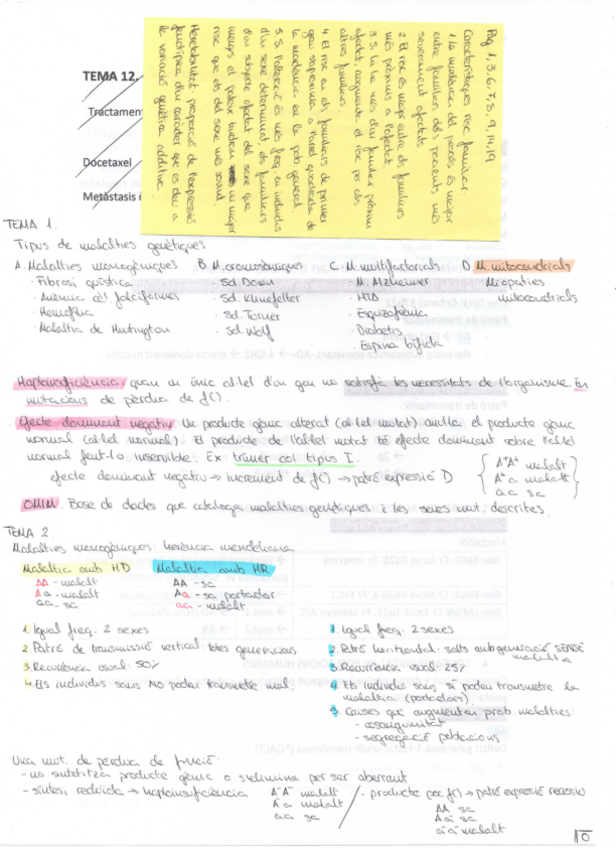 Pàg 1, 3, 6, 7, 8, 9, 14, 19
Característiques risc familiar.
1. La incidència del procés és major
entre familiars dels pacients més
severament afectats
2. El risc és major entre els familiars
més pròxims a l'afectat
3. Si hi ha més d'un familiar pròxim
afectat, augmenta el risc per als
altres familiars.
4. El risc en els familiars de primer
grau s'aproxima a l'arrel quadrada de
la incidència en la pob. general.
5. Si l'afectació és més freq. en individus
d'un sexe determinat, els familiars
d'un subjecte afectat del sexe que
menys el pateix tindran un major
risc que els del sexe més sovint.
Heretabilitat: proporció de l'expressió
fenotípica d'un caràcter que es deu a
la variació genètica additiva.
TEMA 12.
Tractament
Docetaxel
Metàstasis
TEMA 1.
Tipus de malalties genètiques
A. Malalties monogèniques B. M. cromosòmiques C. M. multifactorials D. M. mitocondrials
· Fibrosi quística · Sd. Down · M. Alzheimer · Miopaties
· Anèmia cèl falciformes · Sd. Klinefelter · HTA mitocondrials
· Hemofília · Sd. Turner · Esquizofrènia
· Malaltia de Huntington · Sd. Wolf · Diabetis
· Espina bífida
Haploinsuficiència: quan un únic al·lel d'un gen no satisfà les necessitats de l'organisme en
mutacions de pèrdua de f().
Efecte dominant negatiu Un producte gènic alterat (al·lel mutat) anul·la el producte gènic
normal (al·lel normal). El producte de l'al·lel mutat té efecte dominant sobre l'al·lel
normal fent-lo inservible. Ex: trímer col tipus I.
efecte dominant negatiu → increment de f() → patró expressió D
A⁺A⁺ malalt
A⁺a malalt
aa sa
OMIM. Base de dades que cataloga malalties genètiques i les seves mut. descrites.
TEMA 2
Malalties monogèniques: herència mendeliana
Malaltia amb HD Malaltia amb HR
AA - malalt AA - sa
Aa - malalt Aa - sa portador
aa - sa aa - malalt
1. Igual freq. 2 sexes
2. Patró de transmissió vertical: totes generacions
3. Recurrència usual: 50%
4. Els individus sans NO poden transmetre mal.
1. Igual freq. 2 sexes
2. Patró horitzontal: salts amb generació SENSE
malaltia
3. Recurrència usual: 25%
4. Els individus sans sí poden transmetre la
malaltia (portadors).
5. Causes que augmenten prob. malalties:
- consanguinitat
- segregació poblacions
Una mut. de pèrdua de funció:
- no sintetitza producte gènic o s'elimina per ser aberrant
- síntesi reduïda → haploinsuficiència A⁻A⁻ malalt
A⁻a malalt
aa sa
- producte poc f() → patró expressió recessiu
AA sa
Aa⁻ sa
a⁻a⁻ malalt
10